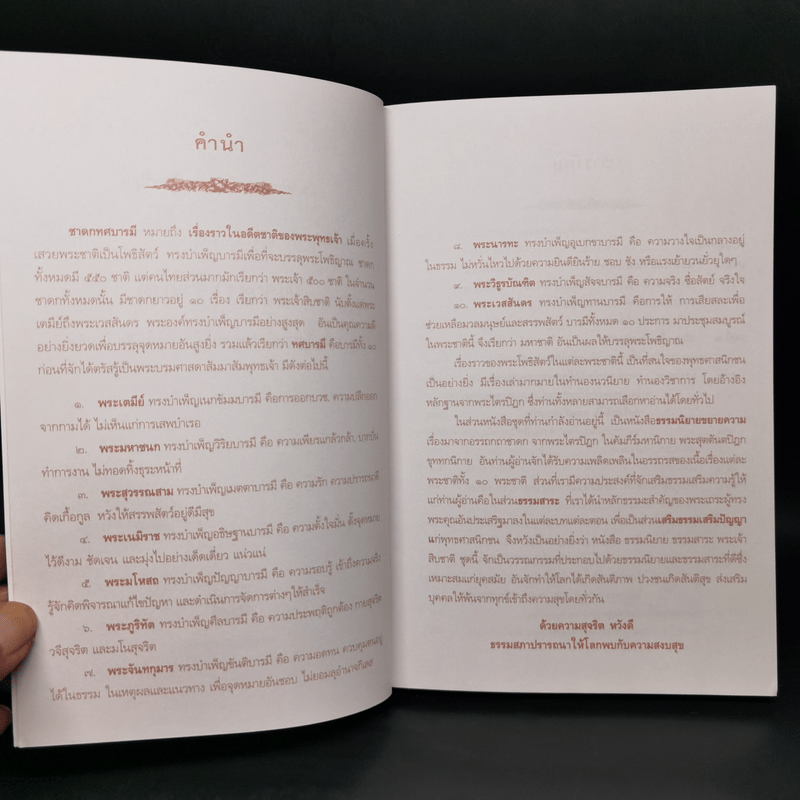 คำนำ
ชาดกทศบารมี หมายถึง เรื่องราวในอดีตชาติของพระพุทธเจ้า เมื่อครั้ง
เสวยพระชาติเป็นโพธิสัตว์ ทรงบำเพ็ญบารมีเพื่อที่จะบรรลุพระโพธิญาณ ชาดก
ทั้งหมดมี ๕๕๐ ชาติ แต่คนไทยส่วนมากมักเรียกว่า พระเจ้า ๕๐๐ ชาติ ในจำนวน
ชาดกทั้งหมดนั้น มีชาดกยาวอยู่ ๑๐ เรื่อง เรียกว่า พระเจ้าสิบชาติ นับตั้งแต่พระ
เตมีย์ถึงพระเวสสันดร พระองค์ทรงบำเพ็ญบารมีอย่างสูงสุด อันเป็นคุณความดี
อย่างยิ่งยวดเพื่อบรรลุจุดหมายอันสูงยิ่ง รวมแล้วเรียกว่า ทศบารมี คือบารมีทั้ง ๑๐
ก่อนที่จักได้ตรัสรู้เป็นพระบรมศาสดาสัมมาสัมพุทธเจ้า มีดังต่อไปนี้
๑. พระเตมีย์ ทรงบำเพ็ญเนกขัมมบารมี คือการออกบวช. ความปลีกออก
จากกามได้ ไม่เห็นแก่การเสพบำเรอ
๒. พระมหาชนก ทรงบำเพ็ญวิริยบารมี คือ ความเพียรแกล้วกล้า. บากบั่น
ทำการงาน ไม่ทอดทิ้งธุระหน้าที่
๓. พระสุวรรณสาม ทรงบำเพ็ญเมตตาบารมี คือ ความรัก ความปรารถนาดี
คิดเกื้อกูล หวังให้สรรพสัตว์อยู่ดีมีสุข
๔. พระเนมิราช ทรงบำเพ็ญอธิษฐานบารมี คือ ความตั้งใจมั่น ตั้งจุดหมาย
ไว้ดีงาม ชัดเจน และมุ่งไปอย่างเด็ดเดี่ยว แน่วแน่
๕. พระมโหสถ ทรงบำเพ็ญปัญญาบารมี คือ ความรอบรู้ เข้าถึงความจริง
รู้จักคิดพิจารณาแก้ไขปัญหา และดำเนินการจัดการต่างๆให้สำเร็จ
๖. พระภูริทัต ทรงบำเพ็ญศีลบารมี คือ ความประพฤติถูกต้อง กายสุจริต
วจีสุจริต และมโนสุจริต
๗. พระจันทกุมาร ทรงบำเพ็ญขันติบารมี คือ ความอดทน ควบคุมตนอยู่
ได้ในธรรม ในเหตุผลและแนวทาง เพื่อจุดหมายอันชอบ ไม่ยอมลุอำนาจกิเลส
๘. พระนารทะ ทรงบำเพ็ญอุเบกขาบารมี คือ ความวางใจเป็นกลางอยู่
ในธรรม ไม่หวั่นไหวไปด้วยความยินดียินร้าย ชอบ ชัง หรือแรงเย้ายวนยั่วยุใดๆ
๙. พระวิธูรบัณฑิต ทรงบำเพ็ญสัจจบารมี คือ ความจริง ซื่อสัตย์ จริงใจ
๑๐. พระเวสสันดร ทรงบำเพ็ญทานบารมี คือการให้ การเสียสละเพื่อ
ช่วยเหลือมวลมนุษย์และสรรพสัตว์ บารมีทั้งหมด ๑๐ ประการ มาประชุมสมบูรณ์
ในพระชาตินี้ จึงเรียกว่า มหาชาติ อันเป็นผลให้บรรลุพระโพธิญาณ
เรื่องราวของพระโพธิสัตว์ในแต่ละพระชาตินี้ เป็นที่สนใจของพุทธศาสนิกชน
เป็นอย่างยิ่ง มีเรื่องเล่ามากมายในทำนองนวนิยาย ทำนองวิชาการ โดยอ้างอิง
หลักฐานจากพระไตรปิฎก ซึ่งท่านทั้งหลายสามารถเลือกหาอ่านได้โดยทั่วไป
ในส่วนหนังสือชุดที่ท่านกำลังอ่านอยู่นี้ เป็นหนังสือธรรมนิยายขยายความ
เรื่องมาจากอรรถกถาชาดก จากพระไตรปิฎก ในคัมภีร์มหานิกาย พระสุตตันตปิฎก
ขุททกนิกาย อันท่านผู้อ่านจักได้รับความเพลิดเพลินในอรรถรสของเนื้อเรื่องแต่ละ
พระชาติทั้ง ๑๐ พระชาติ ส่วนที่เรามีความประสงค์ที่จักเสริมเสริมความรู้ให้
แก่ท่านผู้อ่านคือในส่วนธรรมสาระ ที่เราได้นำหลักธรรมสำคัญของพระเถระผู้ทรง
พระคุณอันประเสริฐมาลงในแต่ละบทแต่ละตอน เพื่อเป็นส่วนเสริมธรรมเสริมปัญญา
แก่พุทธศาสนิกชน จึงหวังเป็นอย่างยิ่งว่า หนังสือ ธรรมนิยาย ธรรมสาระ พระเจ้า
สิบชาติ ชุดนี้ จักเป็นวรรณกรรมที่ประกอบไปด้วยธรรมนิยายและธรรมสาระที่ดีซึ่ง
เหมาะสมแก่ยุคสมัย อันจักทำให้โลกได้เกิดสันติภาพ ปวงชนเกิดสันติสุข ส่งเสริม
บุคคลให้พ้นจากทุกข์เข้าถึงความสุขโดยทั่วกัน
ด้วยความสุจริต หวังดี
ธรรมสภาปรารถนาให้โลกพบกับความสงบสุข